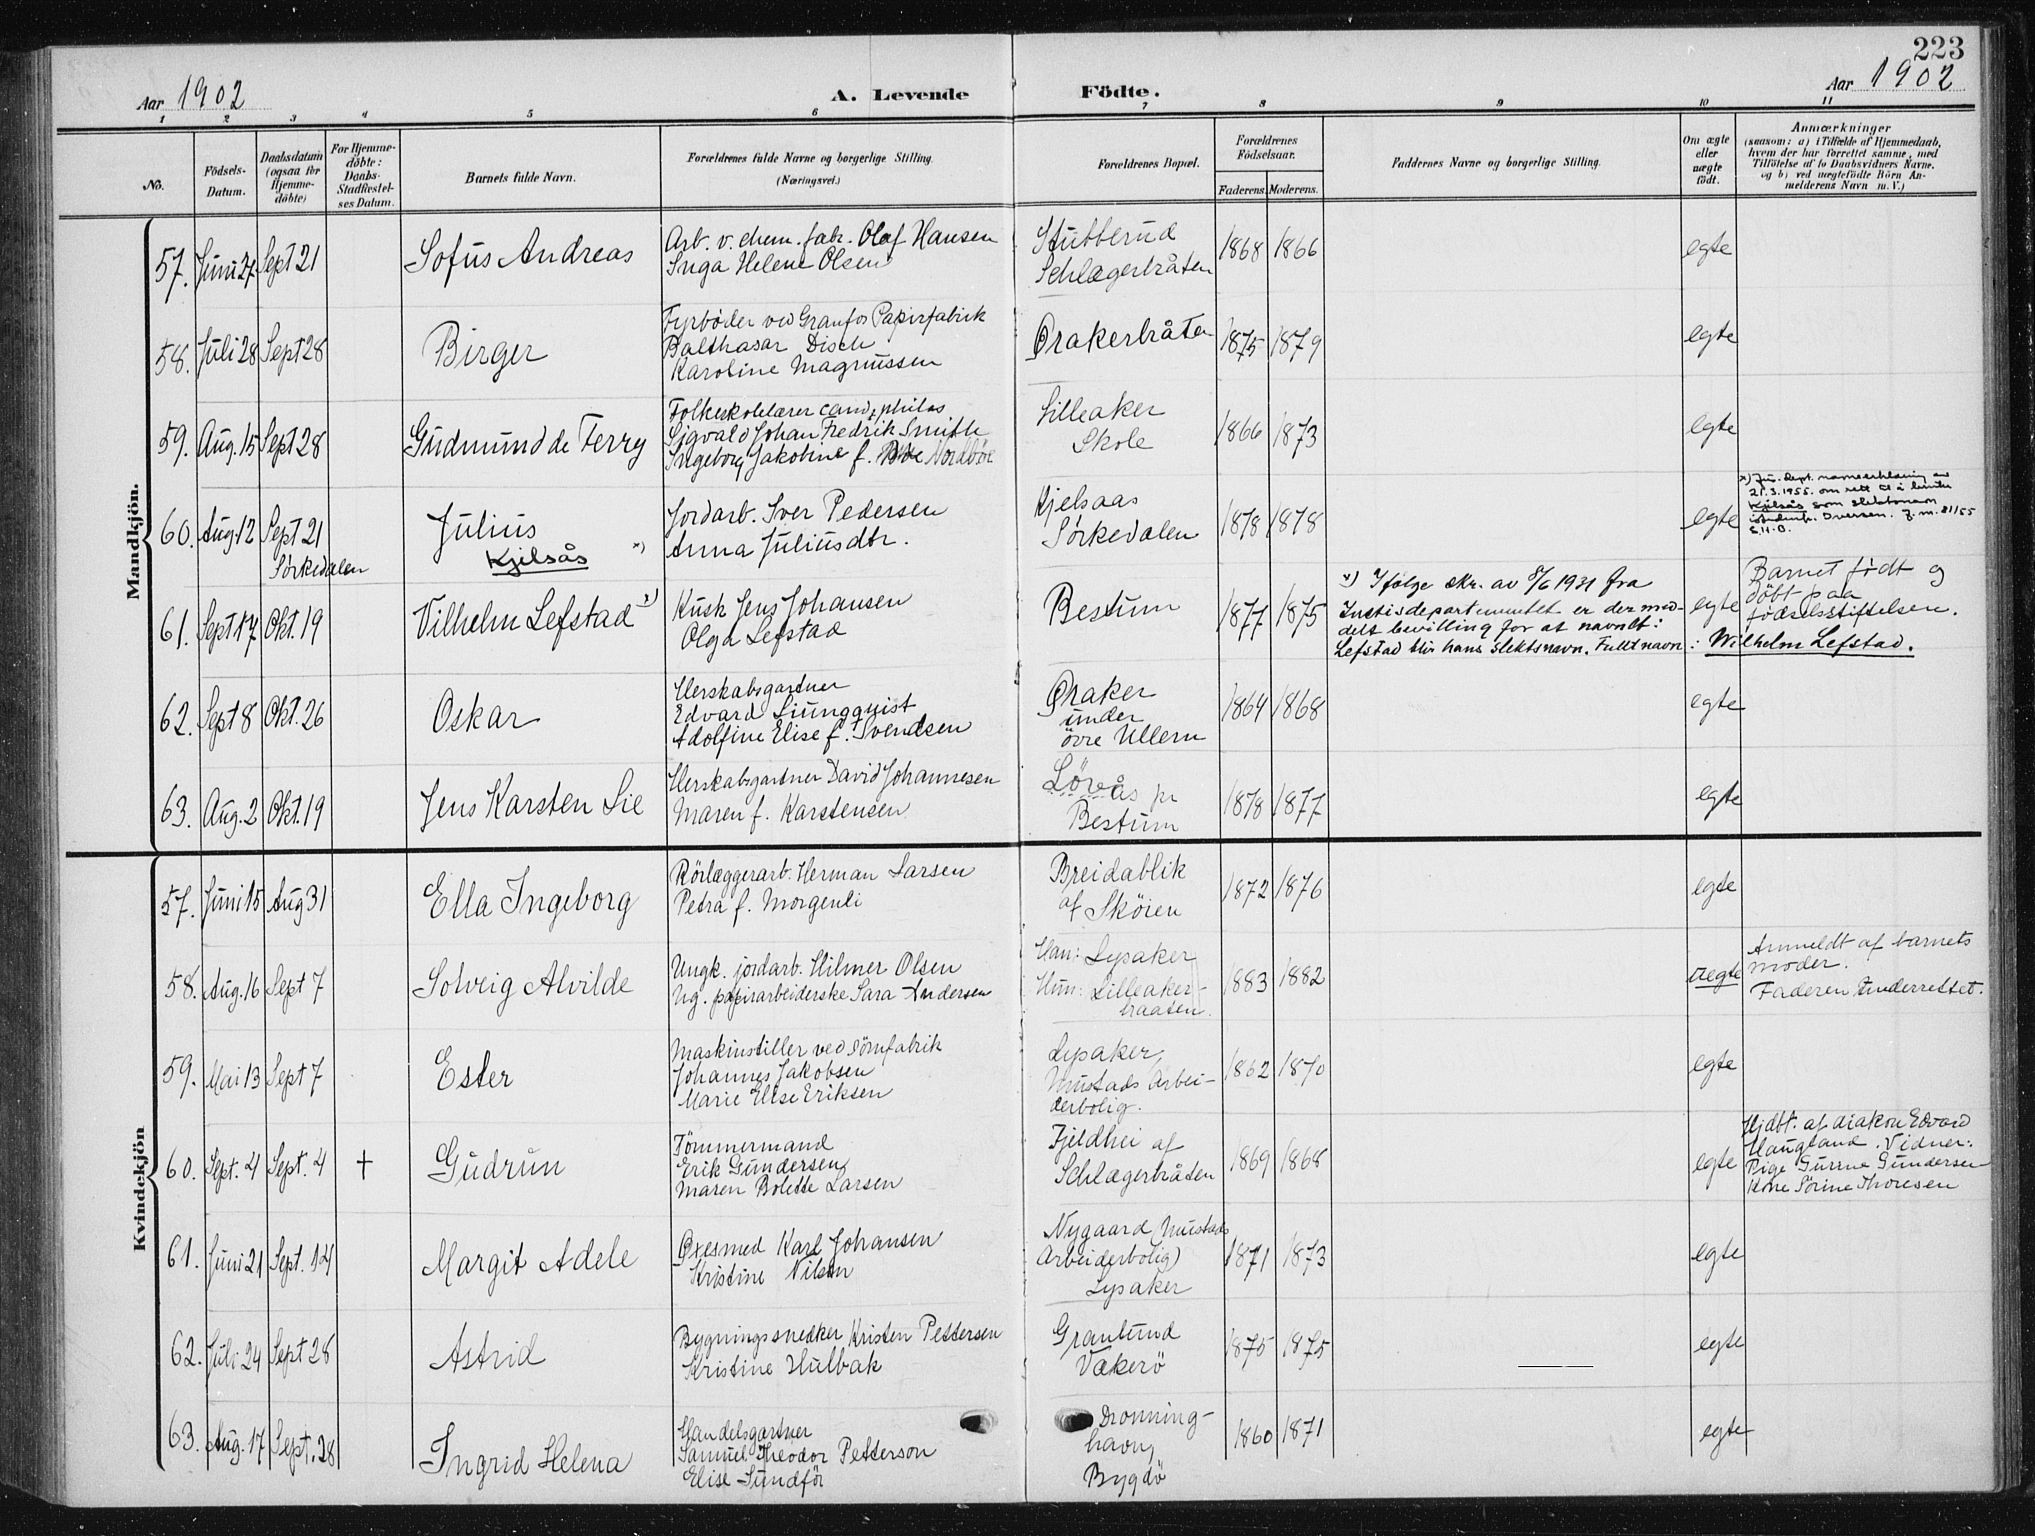 223
Aar 1902
A. Levende Födte.
Aar 1902
1 2 3 4 5 6 7 8 9 10 11
No.
Födsels-Datum.
Daabsdatum (ogsaa for Hjemme-döbte)
For Hjemme-döbte: Daabs-Stadfæstel-ses Datum.
Barnets fulde Navn.
Forældrenes fulde Navne og borgerlige Stilling.
(Næringsvei.)
Forældrenes Bopæl.
Forældrenes Födselsaar.
Faderens. Moderens.
Faddernes Navne og borgerlige Stilling.
Om ægte eller uægte födt.
Anmærkninger
(saasom: a) i Tilfælde af Hjemmedaab, hvem der har forrettet samme, med Tilföielse af to Daabsvidners Navne. og b) ved uægtefödte Börn An-melderens Navn m. V.)
Mandkjön.
57. Juni 27 Sept 21 Sofus Andreas
Arb. v. chem. fabr. Olaf Hansen
Inga Helene Olsen
Stubberud
Schlagerbråten
1868 1866 egte
58. Juli 28 Sept 28 Birger
Fyrbøder ved Granfos Papirfabrik
Balthasar Disch
Karoline Magnussen
Ørakerbråten
1875 1879 egte
59. Aug. 15 Sept 28 Gudmund de Ferry
Folkeskolelærer cand. philos
Sigvald Johan Fredrik Smith
Ingeborg Jakobine f. Nordbøe
Lilleaker
Skole
1866 1873 egte
60. Aug 12 Sept 21
Sørkedalen
Julius
Kjelsås x)
Jordarb. Iver Pedersen
Anna Juliusdtr.
Kjelsaas
Sørkedalen
1878 1878 egte
x) Ju. dept. navneerklæring av
21.3.1955. om rett til å benytte
Kjelsås som slektsnavn
istedenf. Iversen. J. m. 81/55
61. Sept 17 Okt. 19 Vilhelm Lefstad x)
Kusk Jens Johansen
Olga Lefstad
Bestum
1877 1875
x) Ifølge skr. av 8/6 1931 fra
Justisdepartementet er der med-
delt bevilling for at navnet:
Lefstad blir hans slektsnavn. Fullt navn : Wilhelm Lefstad.
egte
Barnet født og
döbt paa
födselsstiftelsen.
62. Sept 8 Okt. 26 Oskar
Herskabsgartner
Edvard Ljungquist
Adolfine Elise f. Svendsen
Øraker
under
övre Ullern
1864 1868 egte
63. Aug. 2 Okt. 19 Jens Karsten Lie
Herskabsgartner David Johannesen
Maren f. Karstensen
Løvås pr
Bestum
1878 1877 egte
Kvindekjön
57. Juni 15 Aug 31 Ella Ingeborg
Rörlæggerarb. Herman Larsen
Petra f. Morgenli
Breidablik
af Skøien
1872 1876 egte
58. Aug. 16 Sept 7 Solveig Alvilde
Ungk. jordarb. Hilmer Olsen
Ug. papirarbeiderske Sara Andersen
Han: Lysaker
Hun: Lilleaker-
braaten.
1883 1882 uegte
Anmeldt af barnets
moder.
Faderen underrettet.
59. Mai 13 Sept 7 Ester
Maskinstiller ved sömfabrik
Johannes Jakobsen
Marie Elise Eriksen
Lysaker,
Mustads Arbei-
derbolig.
1862 1870 egte
60. Sept. 4 Sept. 4 † Gudrun
Tömmermand
Erik Gundersen
Maren Bolette Larsen
Fjeldhei af
Schlagerbråten
1869 1868 egte
Hjdbt. af diakon Edvard
Haugland. Vidner:
Pige Gurine Gundersen
Kone Sörine Thoresen
61. Juni 21 Sept. 14 Margit Adele
Øxesmed Karl Johansen
Kristine Nilsen
Nygaard (Mustads
Arbeiderbolig)
Lysaker
1871 1873 egte
62. Juli 24 Sept 28 Astrid
Bygningssnedker Kristen Pettersen
Kristine Hulbak
Granlund
Vækerö
1875 1875 egte
63. Aug. 17 Sept. 28 Ingrid Helena
Handelsgartner
Samuel Theodor Petterson
Elise Sundför
Dronning-
havn,
Bygdö
1860 1871 egte